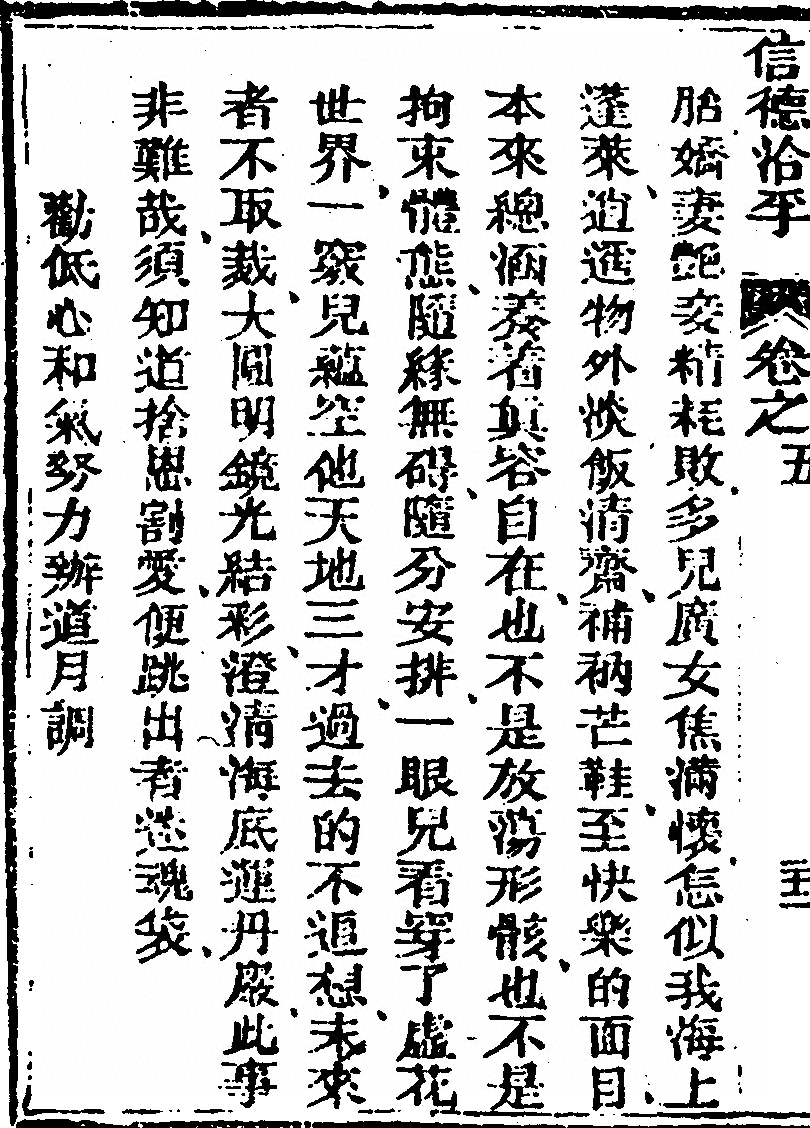 信德洽孚 卷之五
胎嬌妻艷妾精耗敗多兒廣女焦滿懷怎似我海上
蓬萊逍遥物外淡飯清齋補衲芒鞋至快樂的面目
本來總涵養着真容自在也不是放蕩形骸也不是
拘束體態隨緣無碍隨分安排一眼兒看穿了虛花
世界一竅兒蘊空他天地三才過去的不追想未來
者不取裁大圓明鏡光結彩澄清海底運丹嚴此事
非難哉須知道捨恩割愛便跳出者迷魂袋
勸低心和氣努力辦道月調